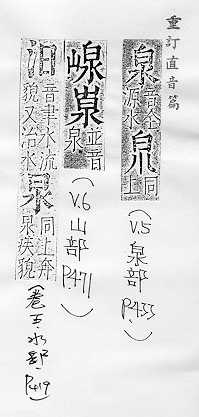 重訂直音篇
泉 音全源水 同上
(V.5 泉部 P.433)
㟫 並音泉
(V.6 山部 P.471)
汩 音聿水流貌又治水 同上奔泉疾貌
(卷五·水部, P.419)